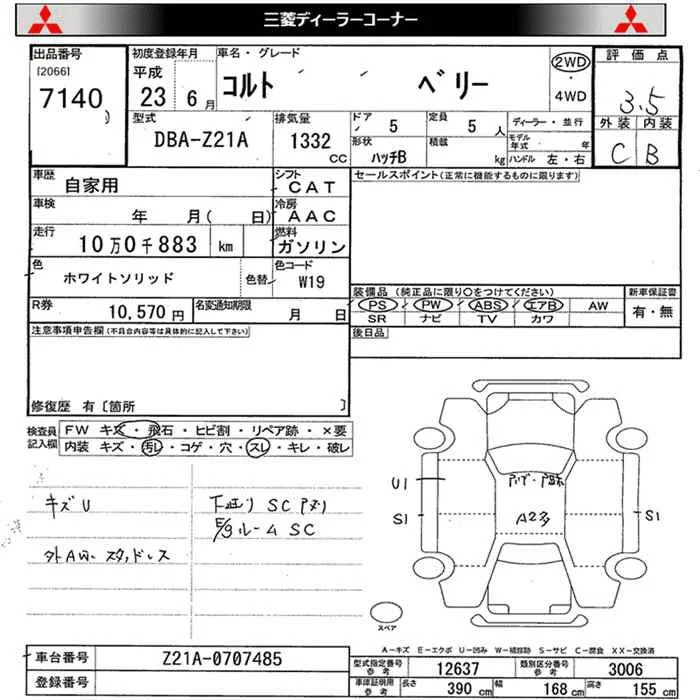 三菱ディーラーコーナー
出品番号
[2066]
7140
初度登録年月
平成
23 6月
車名・グレード
コルト ベリー
2WD
・
4WD
評価点
3.5
外装 内装
C B
型式
DBA-Z21A
排気量
1332
CC
ドア 5
定員 5 人
形状
ハッチB
積載
kg
ディーラー・並行
モデル年式 年
ハンドル 左・右
車歴
自家用
シフト
CAT
セールスポイント(正常に機能するものに限ります)
車検
年 月( 日)
冷房
AAC
走行
10万0千883 km
燃料
ガソリン
色
ホワイトソリッド
色替
色コード
W19
装備品 (純正品に限り〇をつけてください)
PS PW ABS エアB AW
SR ナビ TV カワ
新車保証書
有・無
R券
10,570 円
名変通知期限
月 日
後日品
注意事項申告欄(不具合内容等は具体的に記入して下さい)
修復歴 有〔箇所 〕
検査員
記入欄
FW キズ・飛石・ヒビ割・リペア跡・×要
内装 キズ・汚レ・コゲ・穴・スレ・キレ・破レ
キズU
下廻りSCアリ
E/gルームSC
外AW.スタッドレス
U1
S1
A2多
S1
スペア
A-キズ E-エクボ U-凹み W-補修跡 S-サビ C-腐食 XX-交換済
車台番号
Z21A-0707485
登録番号
型式指定番号
参考
12637
類別区分番号
参考
3006
車庫証明用
参考
長さ 390 cm
幅 168 cm
高さ 155 cm